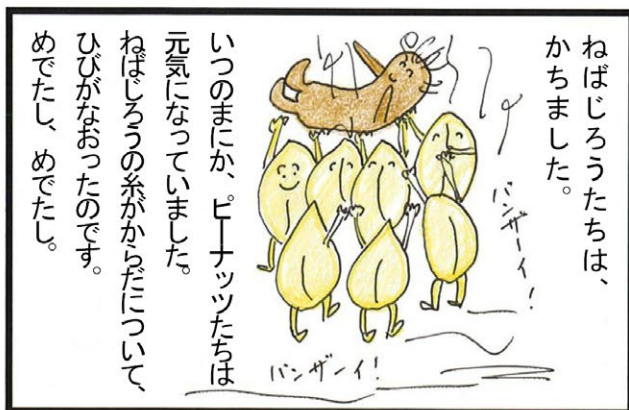 ねばじろうたちは、
かちました。
バンザーイ！
バンザーイ！
いつのまにか、ピーナッツたちは
元気になっていました。
ねばじろうの糸がからだについて、
ひびがなおったのです。
めでたし、めでたし。